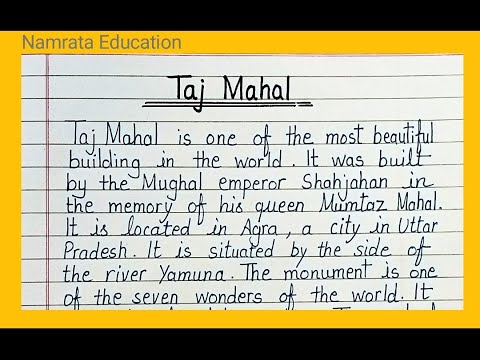 Namrata Education
Taj Mahal
Taj Mahal is one of the most beautiful
building in the world. It was built
by the Mughal emperor Shahjahan in
the memory of his queen Mumtaz Mahal.
It is located in Agra, a city in Uttar
Pradesh. It is situated by the side of
the river Yamuna. The monument is one
of the seven wonders of the world. It